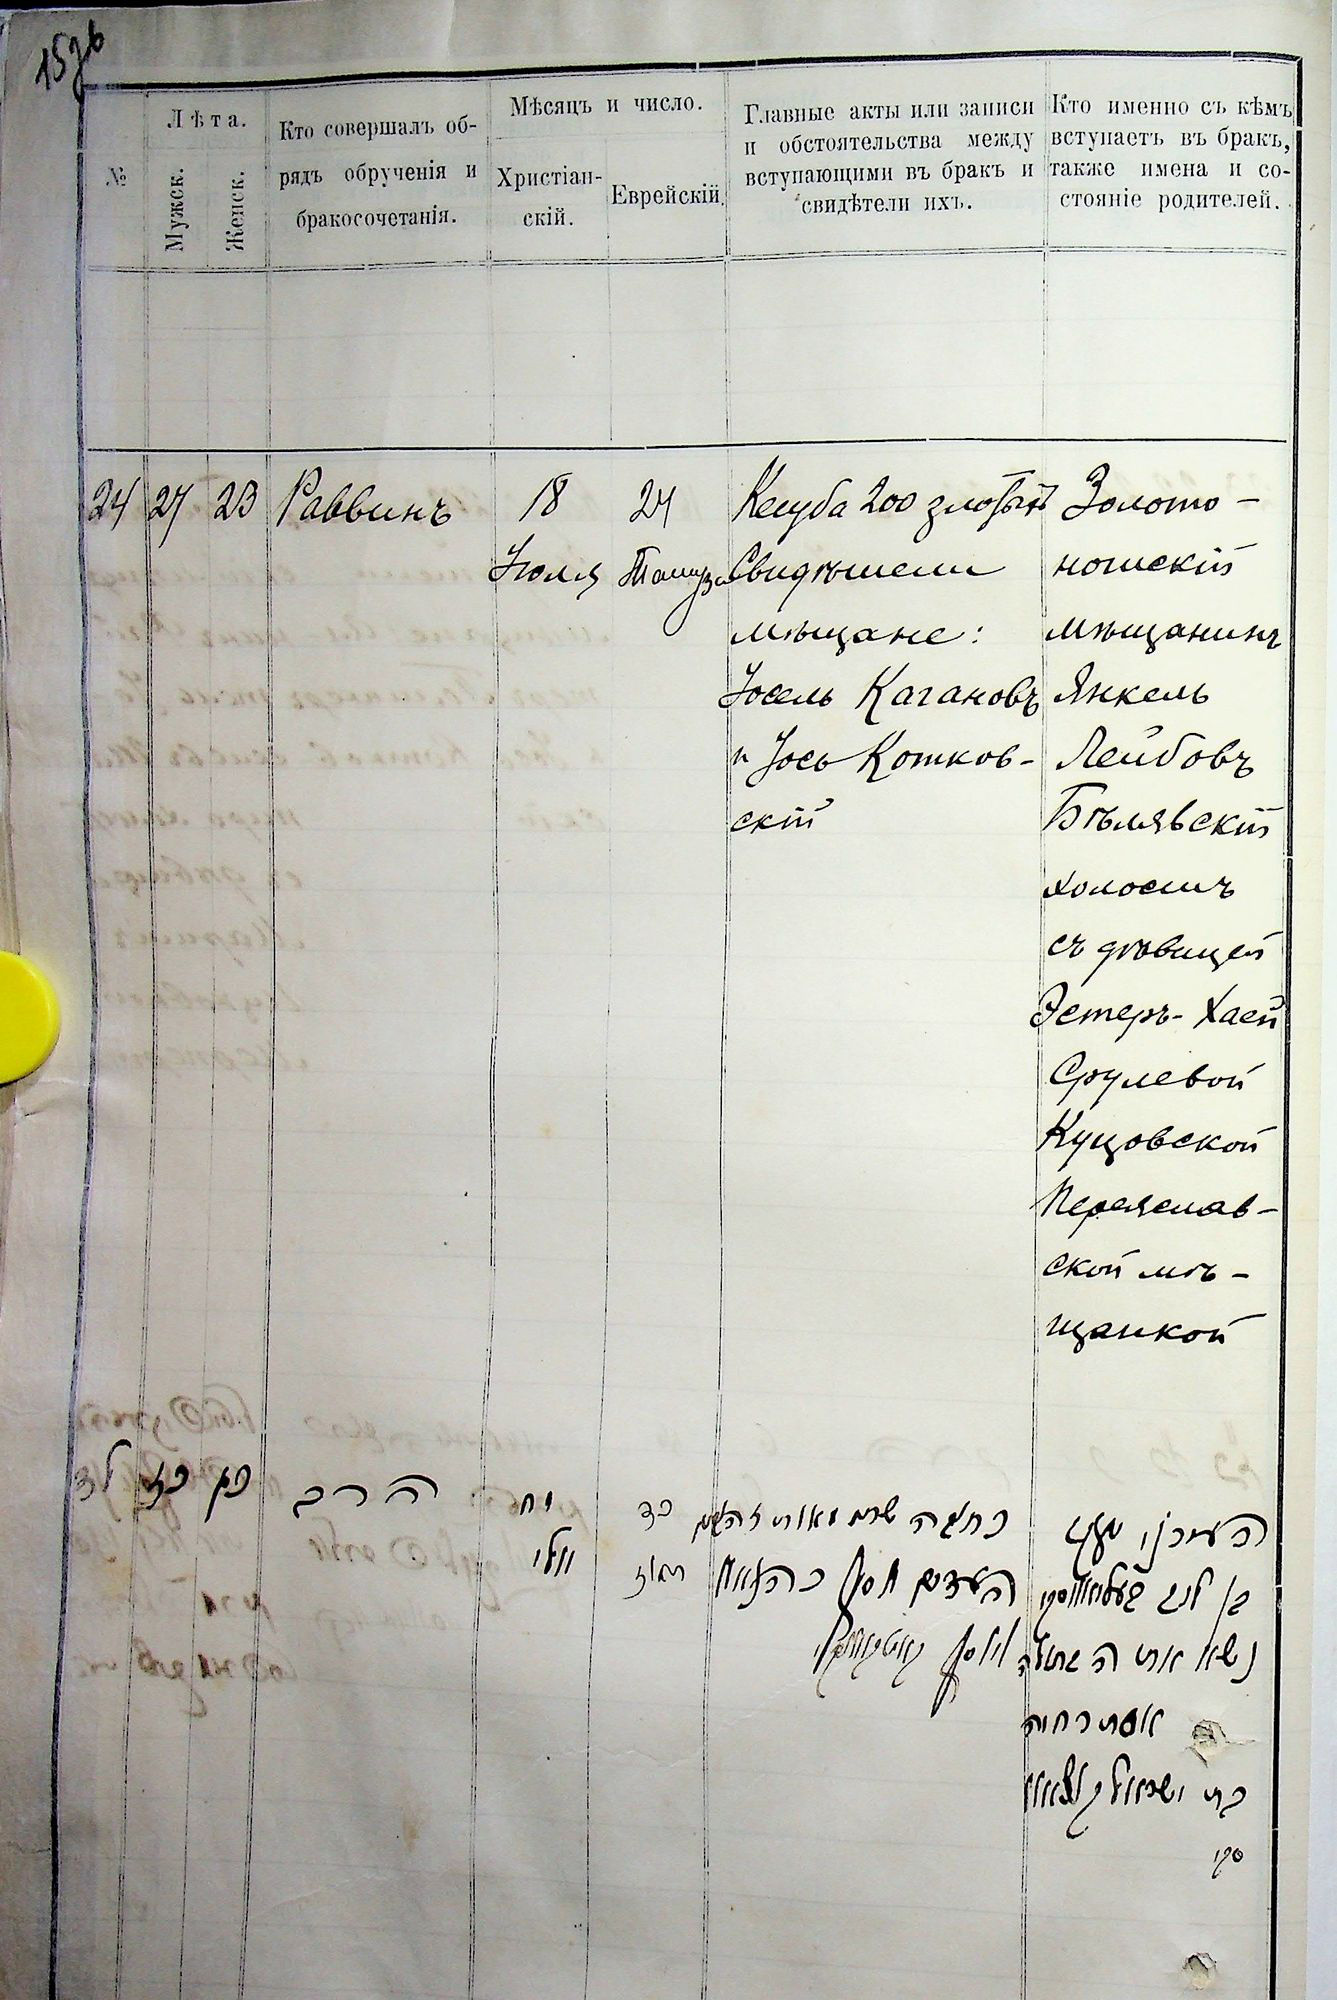 157б
№
Лѣта.
Мужск.
Женск.
Кто совершалъ об-
рядъ обрученія и
бракосочетанія.
Мѣсяцъ и число.
Христіан-
скій.
Еврейскій.
Главные акты или записи
и обстоятельства между
вступающими въ бракъ и
свидѣтели ихъ.
Кто именно съ кѣмъ
вступаетъ въ бракъ,
также имена и со-
стояніе родителей.
24 27 23 Раввинъ
18
Іюля
24
Тамуза
Кетуба 200 злотыхъ
Свидѣтели
мѣщане:
Іосель Кагановъ
и Іось Котков-
скій
Золото-
ношскій
мѣщанинъ
Янкель
Лейбовъ
Бѣлявскій
холостъ
съ дѣвицей
Эстеръ-Хаей
Срулевой
Куцовской
Переяслав-
ской мѣ-
щанкой
כז כג
הרב
יח
יולי
כד
תמוז
כתובה
העדים יוסף
יוסף
בן ליב
נשא את הבתולה
אסתר חיה
בת ישראל
סקי